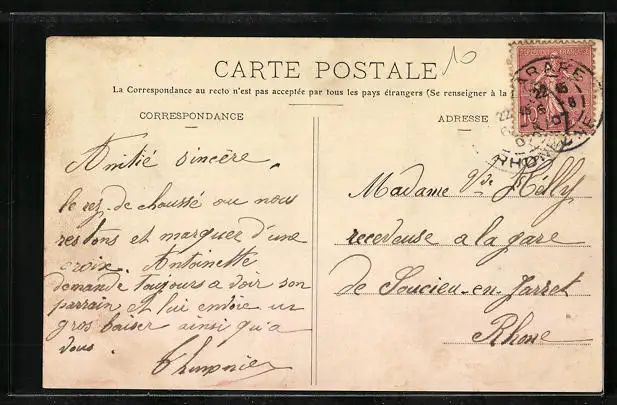 10
CARTE POSTALE
La Correspondance au recto n'est pas acceptée par tous les pays étrangers (Se renseigner à la
CORRESPONDANCE
ADRESSE
Amitié sincère
le rez-de chaussé ou nous
restons et marquer d'une
croix. Antoinette
demande toujours a voir son
parrain et lui envoie un
gros baiser ainsi qu'a
vous.
Madame Vve
receveuse a la gare
de Soucieu-en-Jarret
Rhone
TARARE
RHONE